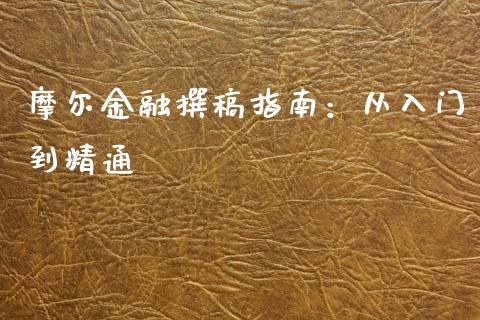 摩尔金融撰稿指南：从入门
到精通